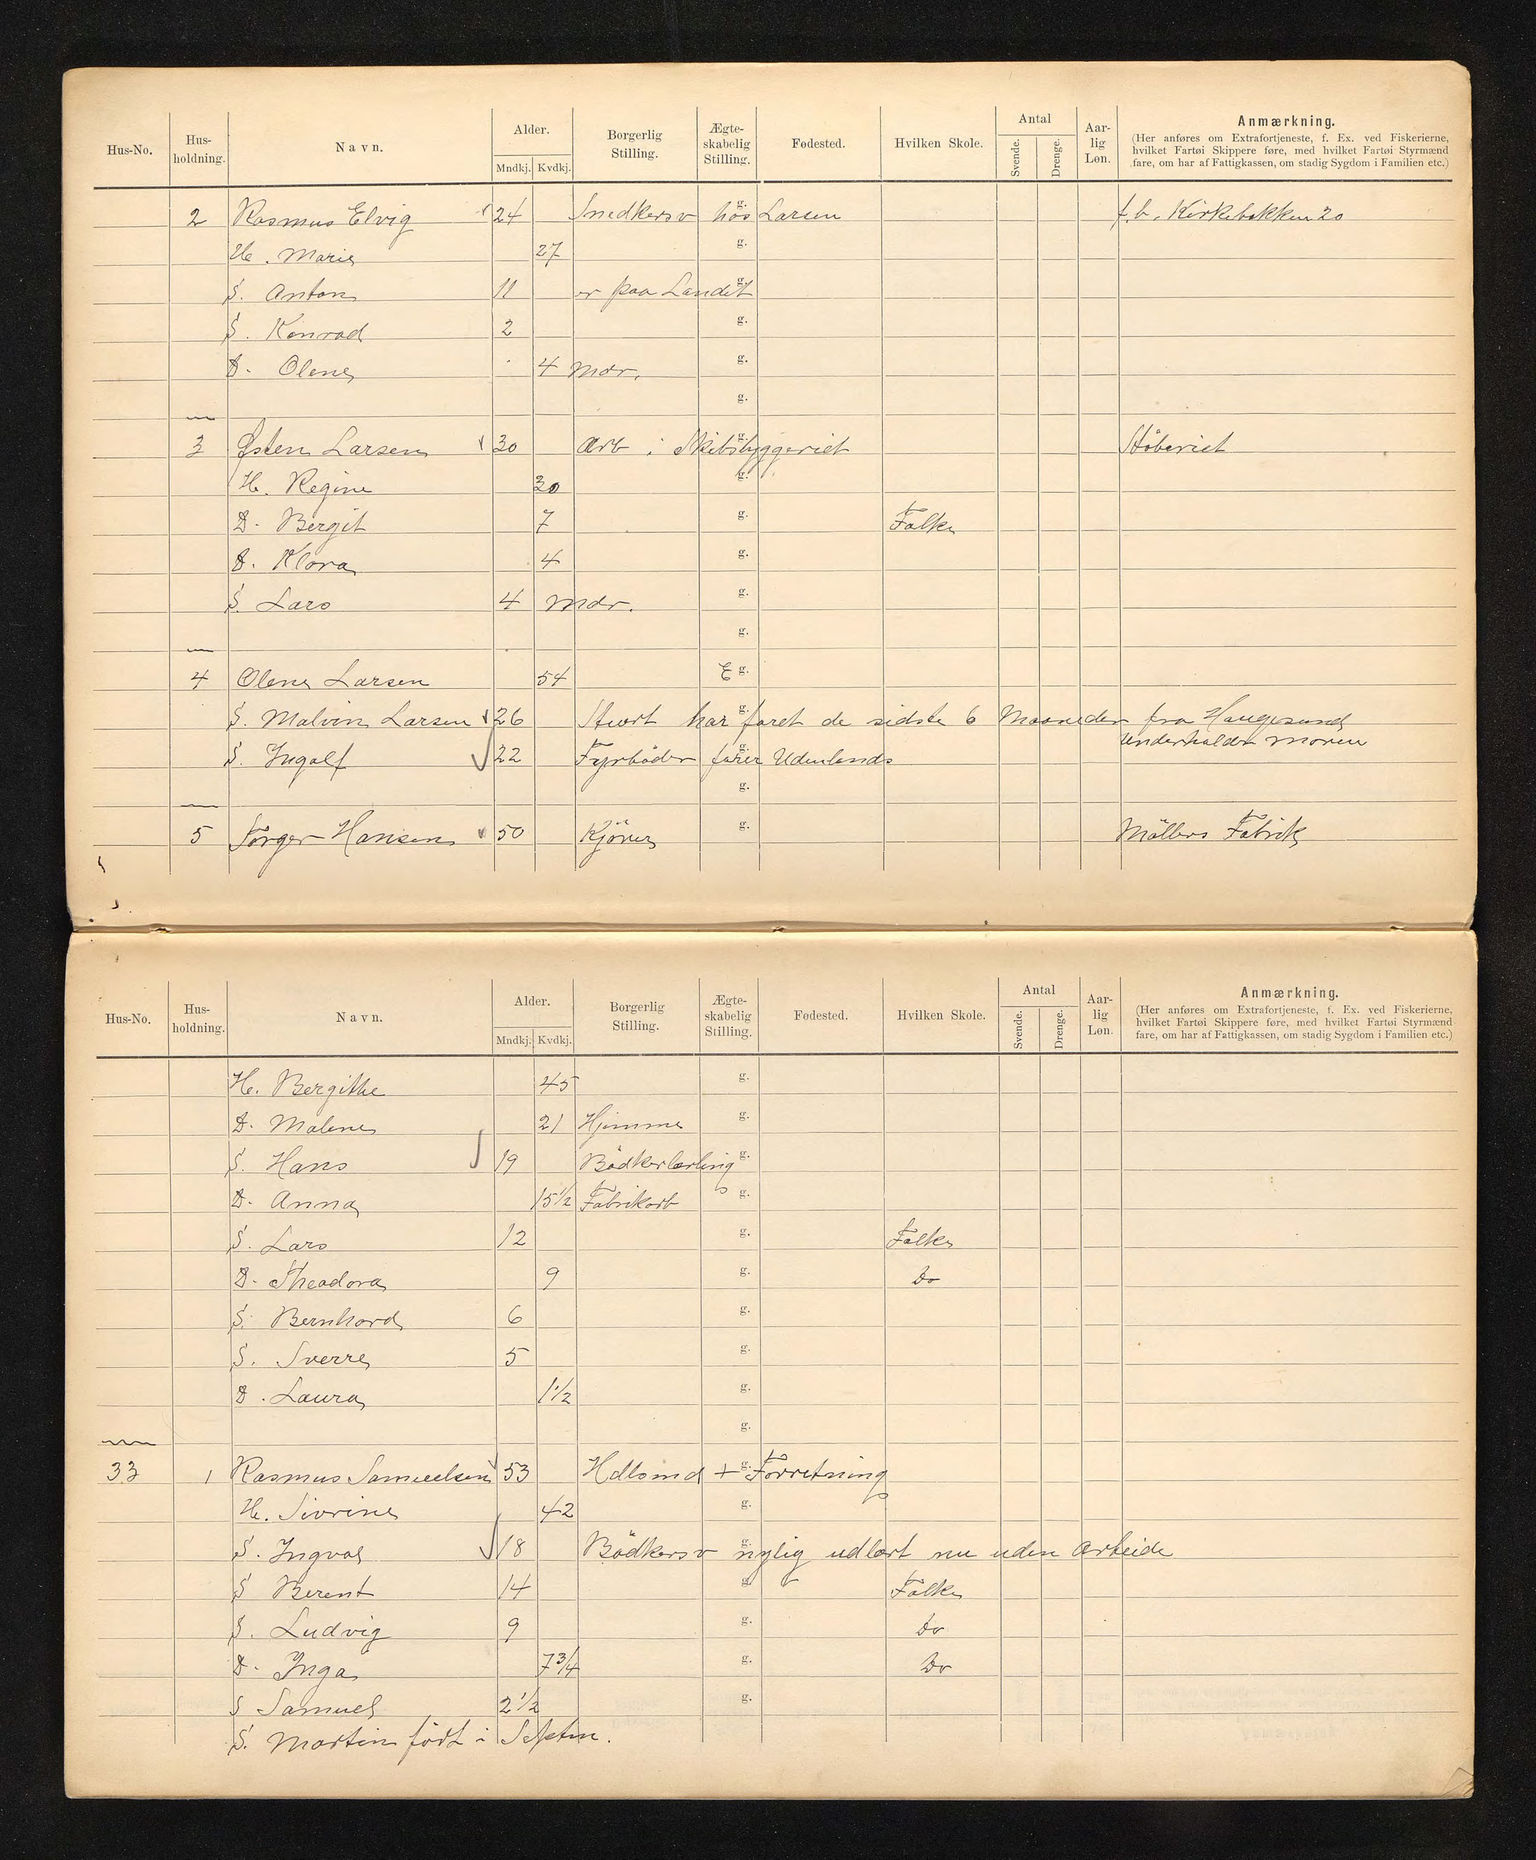 Hus-No. Hus-holdning. Navn. Alder. Mndkj. Kvdkj. Borgerlig Stilling. Ægte-skabelig Stilling. Fødested. Hvilken Skole. Antal Svende. Drenge. Aar-lig Løn. Anmærkning.
(Her anføres om Extrafortjeneste, f. Ex. ved Fiskerierne,
hvilket Fartøi Skippere føre, med hvilket Fartøi Styrmænd
fare, om har af Fattigkassen, om stadig Sygdom i Familien etc.)
2 Rasmus Elvig 24 Snedkersv hos g. Larsen f.b. Kirkebakken 20
H. Marie 27 g.
S. Anton 11 er paa Landet g.
S. Konrad 2 g.
D. Olene 4 Mdr. g.
g.
3 Østen Larsen 30 Arb i Skibsbyggeriet g. Støberiet
H. Regine 30 g.
D. Bergit 7 g. Folke
D. Klara 4 g.
S. Lars 4 Mdr. g.
g.
4 Olene Larsen 54 E g.
S. Malvin Larsen 26 Stuert har faret de sidste 6 Maaneder fra Haugesund g.
Underholdr moren
S. Ingolf 22 Fyrbøder farer Udenlands g.
g.
5 Tørger Hansen 50 Kjører g. Møllers Fabrik
Hus-No. Hus-holdning. Navn. Alder. Mndkj. Kvdkj. Borgerlig Stilling. Ægte-skabelig Stilling. Fødested. Hvilken Skole. Antal Svende. Drenge. Aar-lig Løn. Anmærkning.
(Her anføres om Extrafortjeneste, f. Ex. ved Fiskerierne,
hvilket Fartøi Skippere føre, med hvilket Fartøi Styrmænd
fare, om har af Fattigkassen, om stadig Sygdom i Familien etc.)
H. Bergithe 45 g.
D. Malene 21 Hjemme g.
S. Hans 19 Bødkerlærling g.
D. Anna 15 1/2 Fabrikarb g.
S. Lars 12 g. Folke
D. Theodora 9 g. Do
S. Bernhard 6 g.
S. Sverre 5 g.
D. Laura 1 1/2 g.
g.
33 1 Rasmus Samuelsen 53 Hdlsmd + Forretning g.
H. Sivrine 42 g.
S. Ingval 18 Bødkersv nylig udlært nu uden Arbeide g.
S Berent 14 g. Folke
S. Ludvig 9 g. Do
D. Inga 7 3/4 g. Do
S Samuel 2 1/2 g.
S. Martin født i Septm.